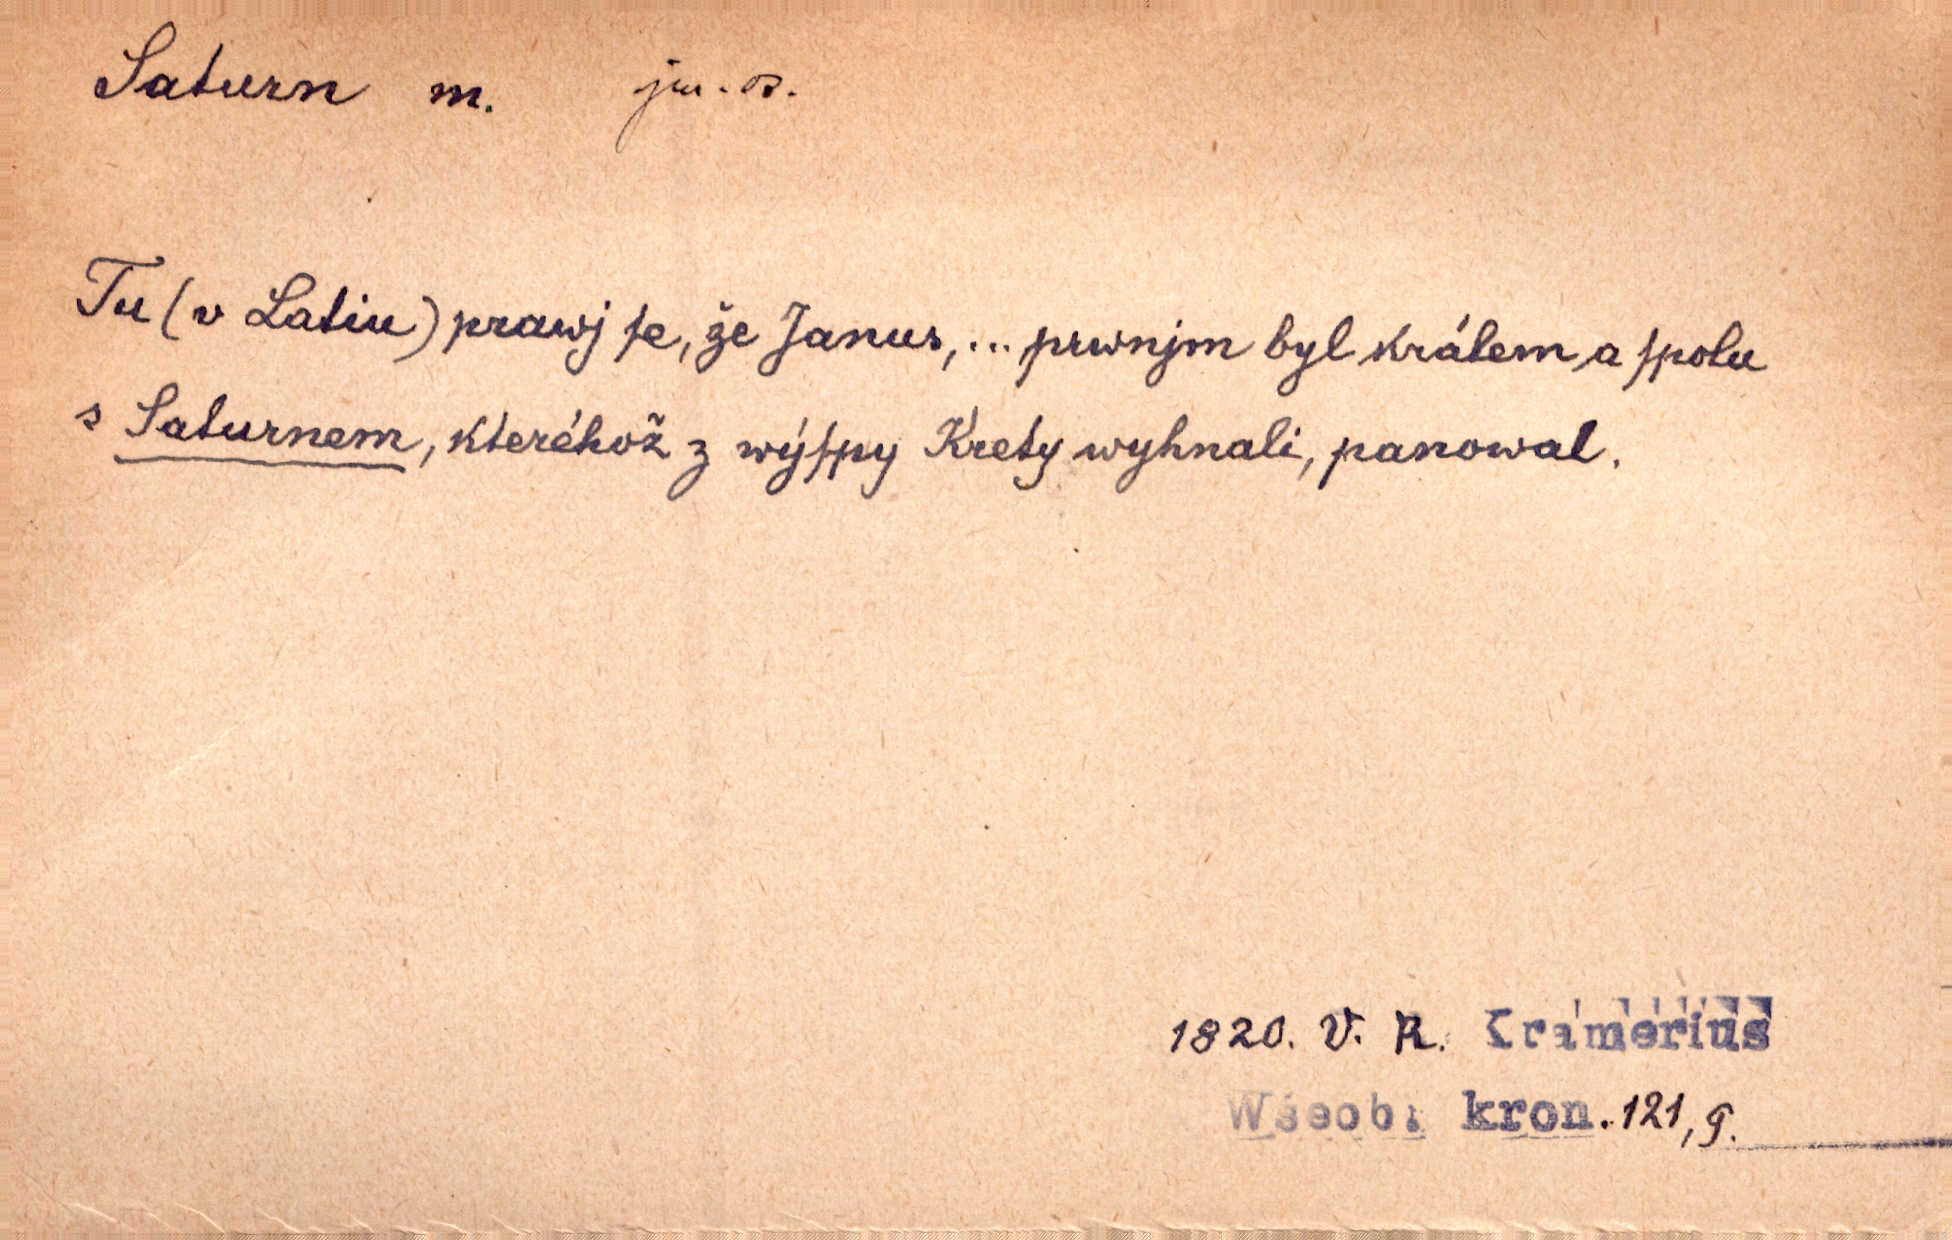 Saturn m. jm. B.
Tu (v Latiu) prawj ſe, že Janus, ... prwnjm byl králem a ſpolu
s Saturnem, kteréhož z wýſpy Krety wyhnali, panowal.
1820. V. R. Kramerius
Wšeob. kron. 121, 9.